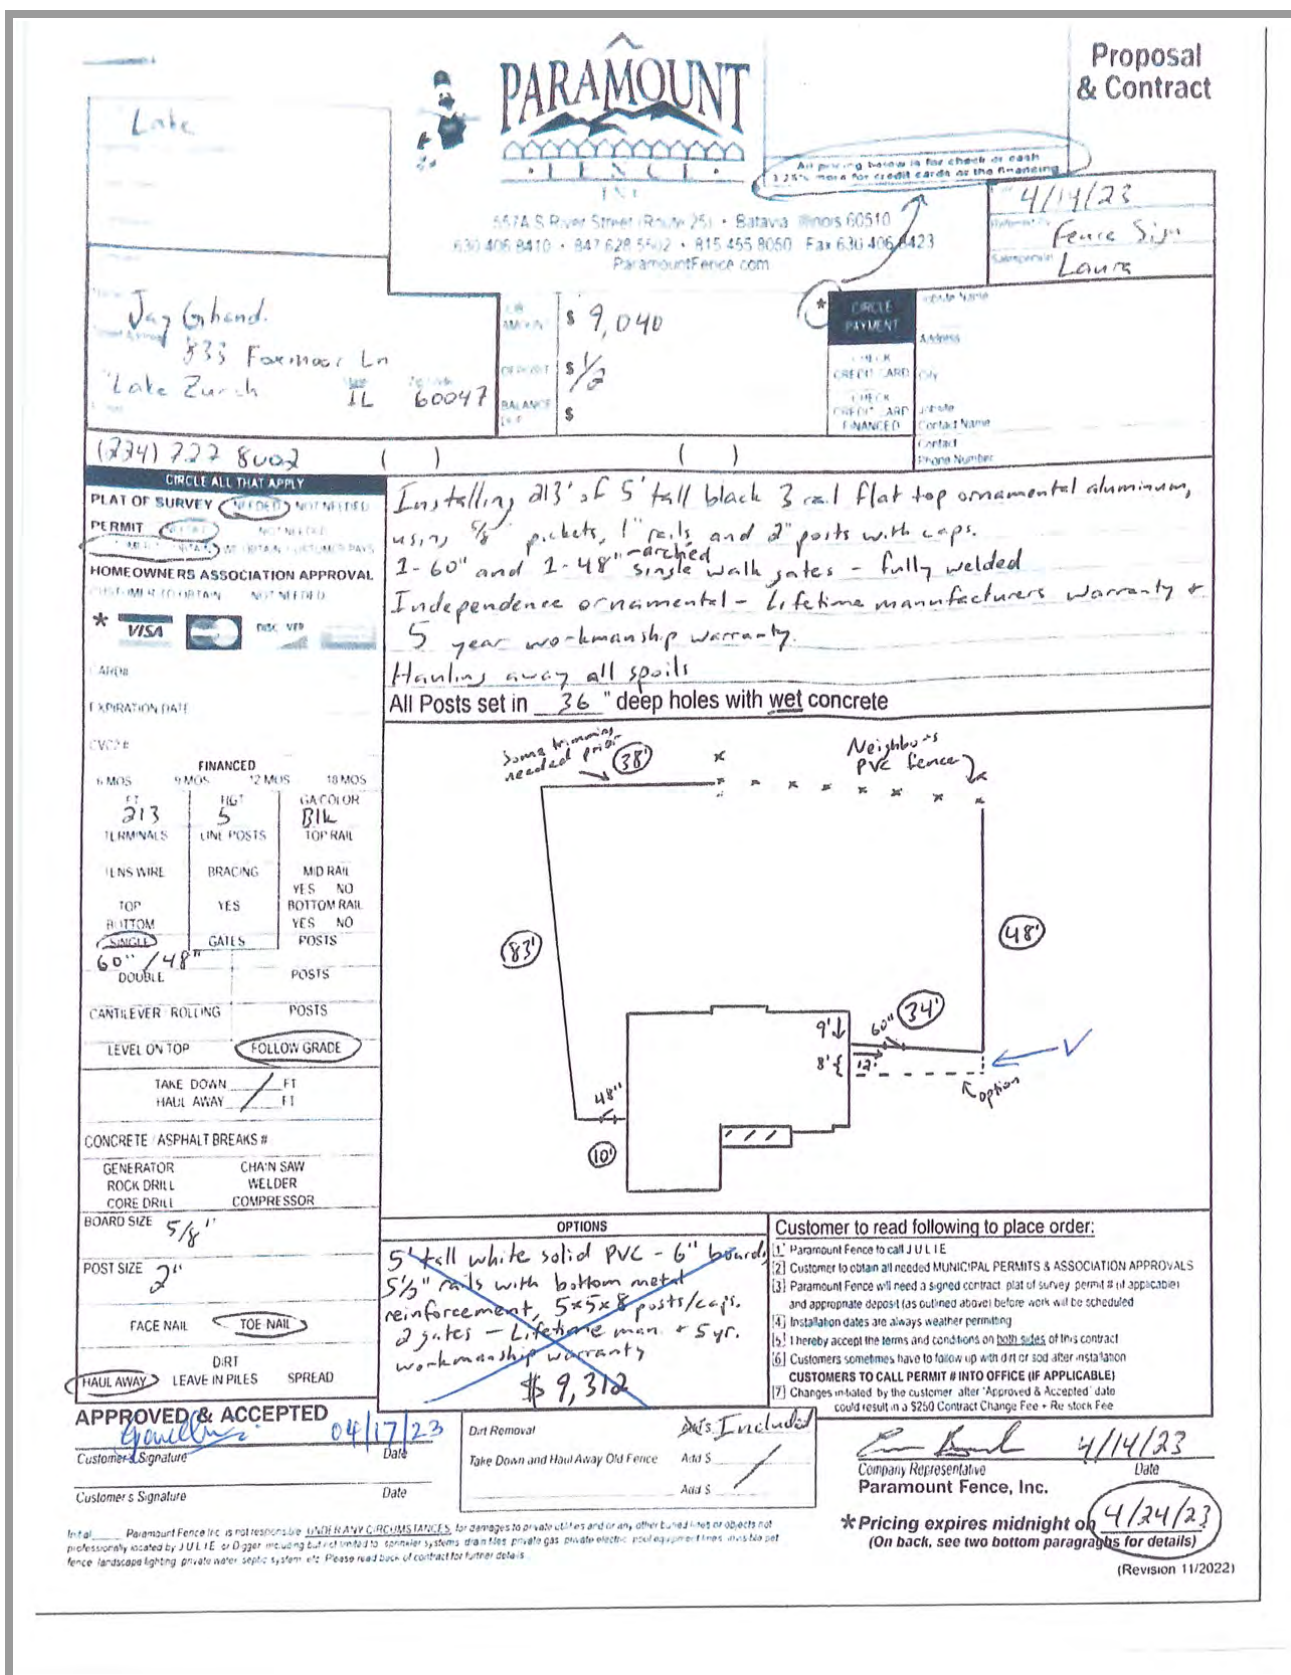 Proposal
& Contract
PARAMOUNT
FENCE
INC
Lake
All pricing below is for check or cash
3.25% more for credit cards or the financing
557A S River Street (Route 25) • Batavia Illinois 60510
630 406 8410 • 847 628 5502 • 815 455 8050 Fax 630 406 8423
ParamountFence.com
4/14/23
Referred By
Fence Sign
Salesperson
Laura
Jay Ghand.
833 Foxmoor Ln
Lake Zurch
State
IL
60047
JOB AMOUNT $ 9,040
DEPOSIT $ 1/2
BALANCE DUE $
*
CIRCLE
PAYMENT
CHECK
CREDIT CARD
CHECK
CREDIT CARD
FINANCED
Jobsite Name
Address
City
Jobsite
Contact Name
Contact
Phone Number
(224) 727 8002
( )
( )
CIRCLE ALL THAT APPLY
PLAT OF SURVEY NEEDED NOT NEEDED
PERMIT NEEDED NOT NEEDED
HOMEOWNERS ASSOCIATION APPROVAL
CUSTOMER TO OBTAIN NOT NEEDED
* VISA MasterCard DISCOVER
CARD#
EXPIRATION DATE
CVC2 #
FINANCED
6 MOS 9 MOS 12 MOS 18 MOS
FT HGT GA/COLOR
213 5 Blk
TERMINALS LINE POSTS TOP RAIL
TENS WIRE BRACING MID RAIL
YES NO
TOP YES BOTTOM RAIL
BOTTOM YES NO
SINGLE GATES POSTS
60" / 48"
DOUBLE POSTS
CANTILEVER ROLLING POSTS
LEVEL ON TOP FOLLOW GRADE
TAKE DOWN / FT
HAUL AWAY / FT
CONCRETE / ASPHALT BREAKS #
GENERATOR CHAIN SAW
ROCK DRILL WELDER
CORE DRILL COMPRESSOR
BOARD SIZE 5/8"
POST SIZE 2"
FACE NAIL TOE NAIL
DIRT
HAUL AWAY LEAVE IN PILES SPREAD
Installing 213' of 5' tall black 3 rail flat top ornamental aluminum,
using 5/8" pickets, 1" rails and 2" posts with caps.
1-60" and 1-48" arched single walk gates - fully welded
Independence ornamental - Lifetime manufacturers warranty +
5 year workmanship warranty.
Hauling away all spoils
All Posts set in 36 " deep holes with wet concrete
Some trimming
needed prior
38'
Neighbors
PVC fence
83'
48'
9'
60"
34'
8'
12'
option
48"
10'
OPTIONS
5' tall white solid PVC - 6" boards
5 1/2" rails with bottom metal
reinforcement, 5x5x8 posts/caps.
2 gates - Lifetime man. + 5 yr.
workmanship warranty
$ 9,312
Customer to read following to place order:
[1] Paramount Fence to call J U L I E
[2] Customer to obtain all needed MUNICIPAL PERMITS & ASSOCIATION APPROVALS
[3] Paramount Fence will need a signed contract, plat of survey, permit # (if applicable)
and appropriate deposit (as outlined above) before work will be scheduled
[4] Installation dates are always weather permitting
[5] I hereby accept the terms and conditions on both sides of this contract
[6] Customers sometimes have to follow up with dirt or sod after installation
CUSTOMERS TO CALL PERMIT # INTO OFFICE (IF APPLICABLE)
[7] Changes initiated by the customer after 'Approved & Accepted' date
could result in a $250 Contract Change Fee + Re stock Fee
APPROVED & ACCEPTED
04/17/23
Customer's Signature Date
Customer's Signature Date
Dirt Removal Included
Take Down and Haul Away Old Fence Add $ /
Add $
4/14/23
Company Representative Date
Paramount Fence, Inc.
*Pricing expires midnight on 4/24/23
(On back, see two bottom paragraphs for details)
(Revision 11/2022)
Initial Paramount Fence Inc. is not responsible UNDER ANY CIRCUMSTANCES, for damages to private utilities and/or any other buried lines or objects not
professionally located by J U L I E or Digger including but not limited to sprinkler systems drain tiles private gas private electric pool equipment lines invisible pet
fence landscape lighting private water septic system etc. Please read back of contract for further details